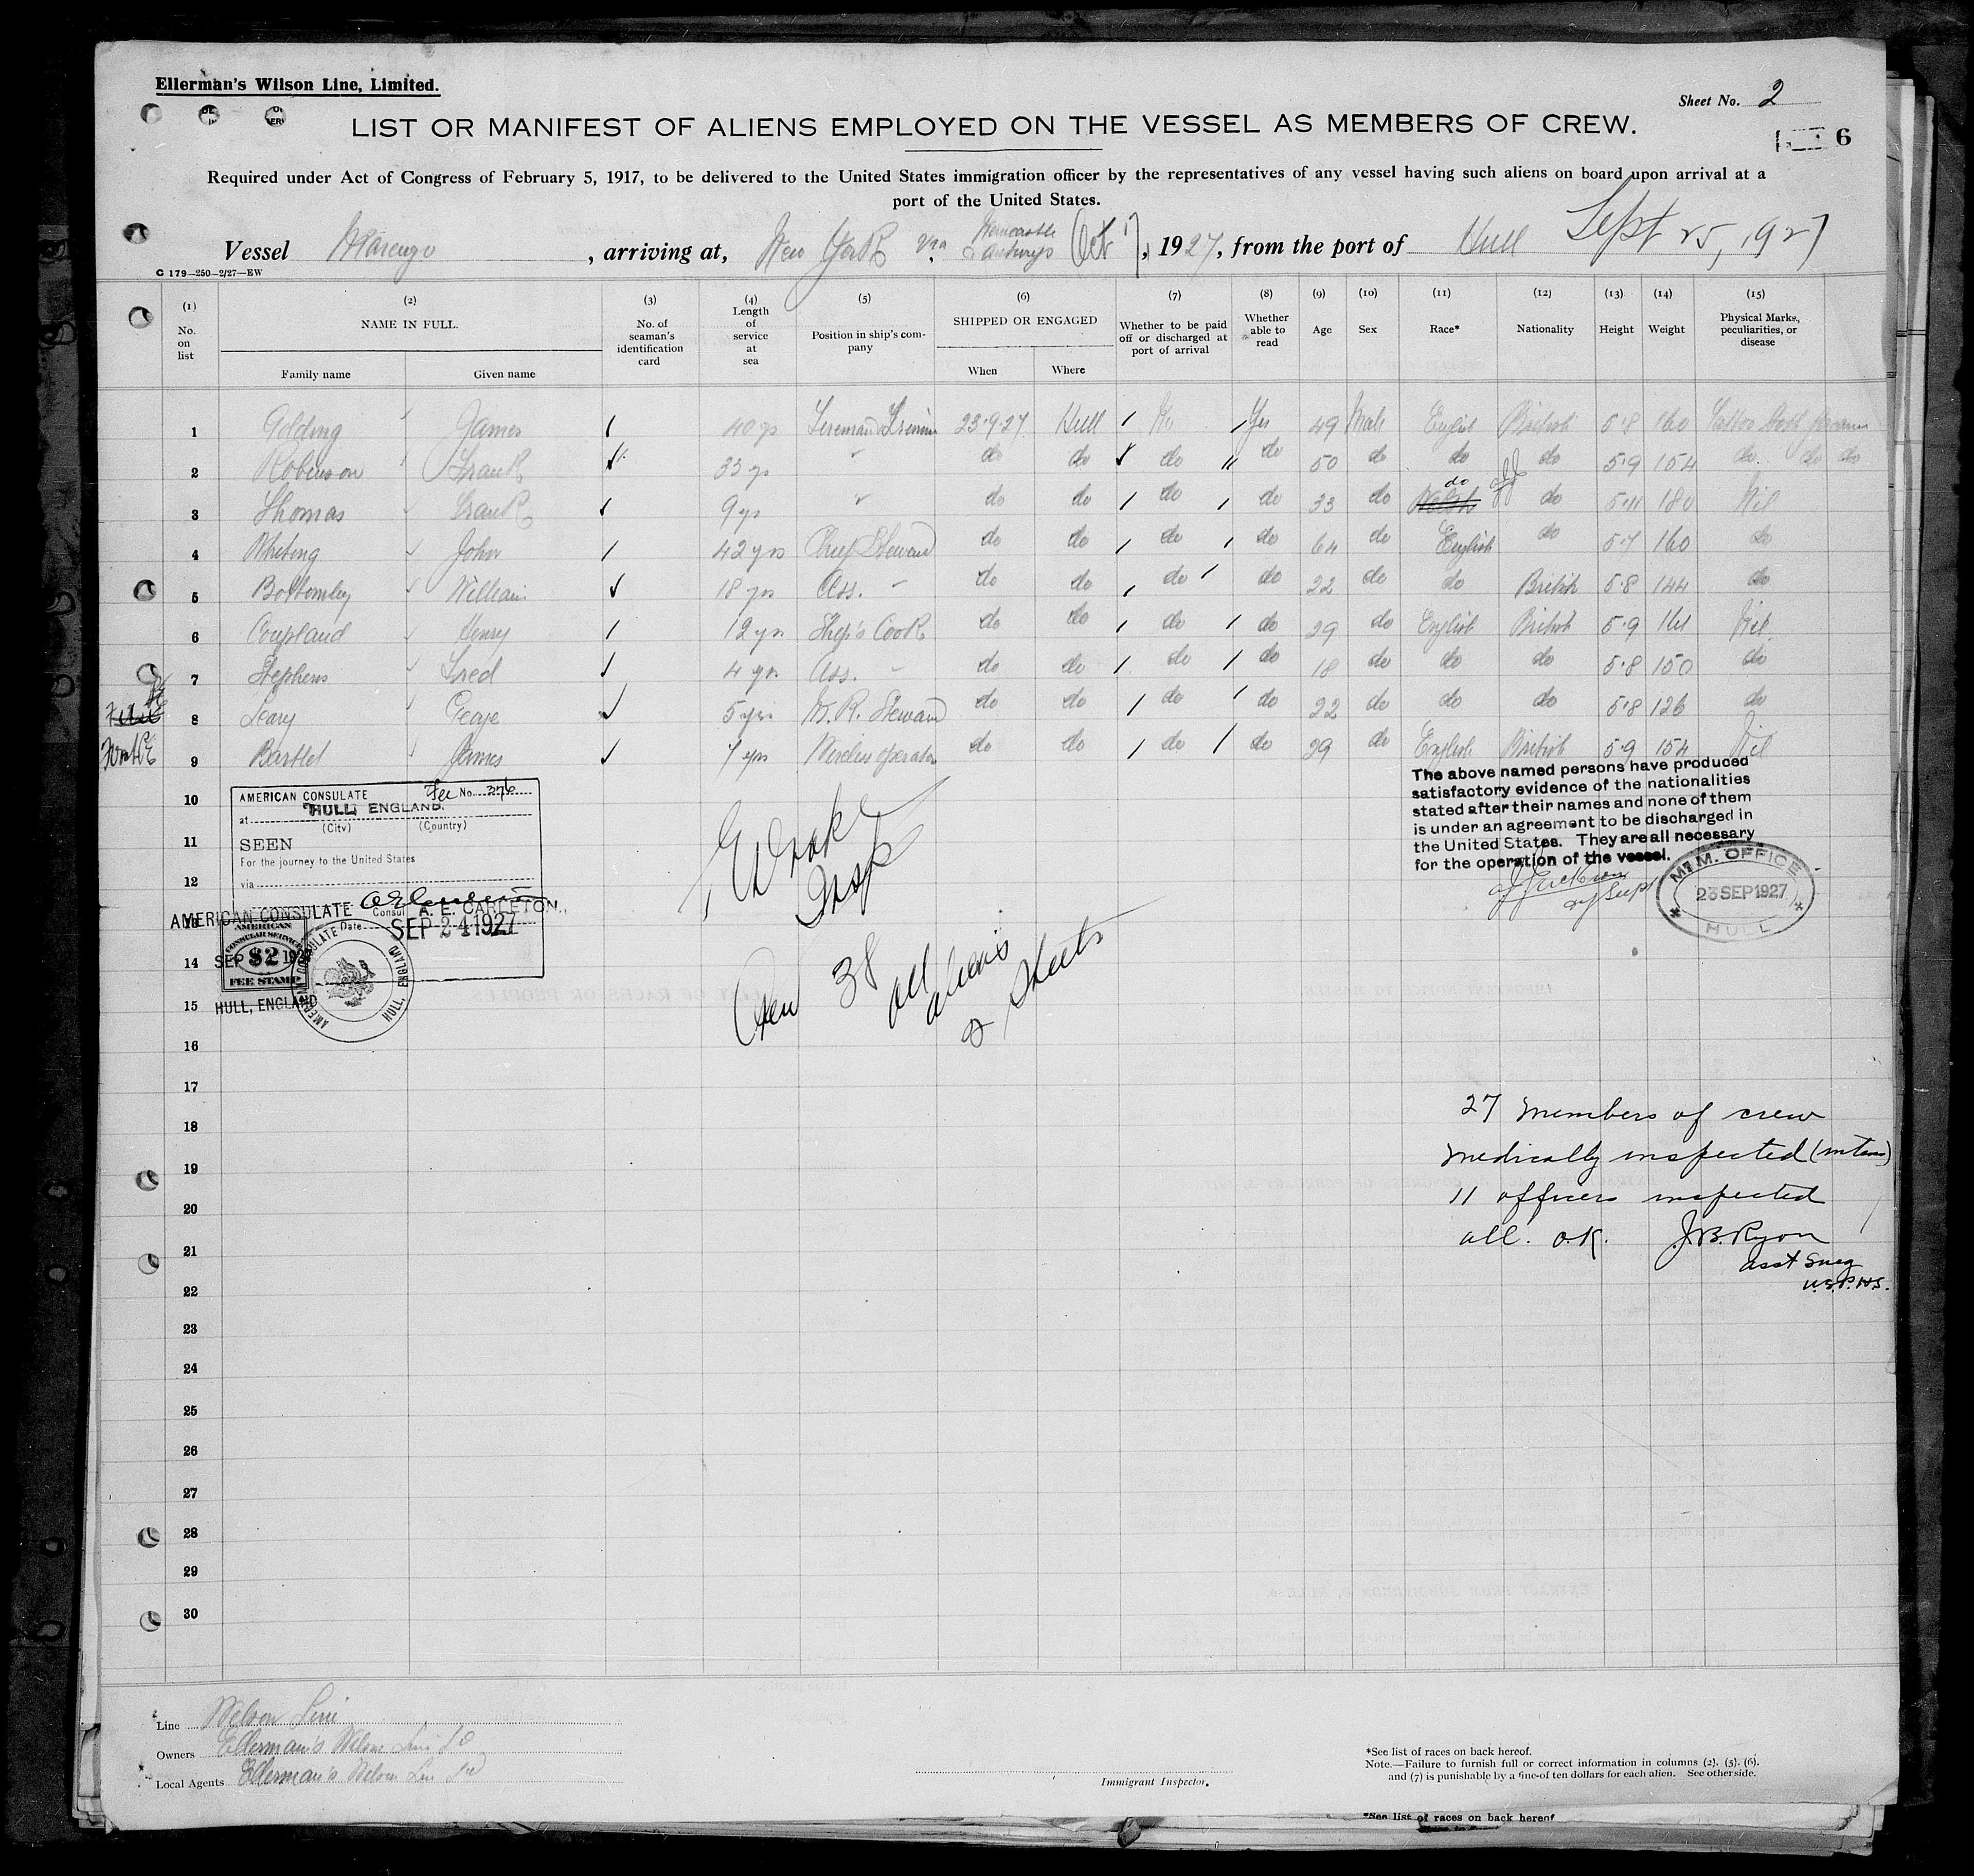 Ellerman's Wilson Line, Limited.
Sheet No. 2
LIST OR MANIFEST OF ALIENS EMPLOYED ON THE VESSEL AS MEMBERS OF CREW.
6
Required under Act of Congress of February 5, 1917, to be delivered to the United States immigration officer by the representatives of any vessel having such aliens on board upon arrival at a
port of the United States.
Vessel Marengo, arriving at, New York via Newcastle & Antwerp Oct 17, 1927, from the port of Hull Sept 25, 1927
C 179-250-2/27-EW
(1) (2) (3) (4) (5) (6) (7) (8) (9) (10) (11) (12) (13) (14) (15)
No. on list NAME IN FULL. Family name Given name No. of seaman's identification card Length of service at sea Position in ship's company SHIPPED OR ENGAGED When Where Whether to be paid off or discharged at port of arrival Whether able to read Age Sex Race* Nationality Height Weight Physical Marks, peculiarities, or disease
1 Golding James 40 yrs Fireman & Trimmer 23.9.27 Hull No Yes 49 Male English British 5.8 160 Tattoo Both forearms
2 Robinson Frank 33 yrs " do do do do 50 do do do 5.9 154 do do do
3 Thomas Frank 9 yrs " do do do do 33 do Welsh do do 5.11 180 Nil
4 Whiting John 42 yrs Chief Steward do do do do 64 do English do 5.7 160 do
5 Bottomley William 18 yrs Ass. " do do do do 22 do do British 5.8 144 do
6 Coupland Henry 12 yrs Ship's Cook do do do do 29 do English British 5.9 161 Nil.
7 Stephens Fred 4 yrs Ass. " do do do do 18 do do do 5.8 150 do
8 Leary George 5 yrs M. R. Steward do do do do 22 do do do 5.8 126 do
9 Bartlet James 7 yrs Wireless operator do do do do 29 do English British 5.9 154 Nil
10
11
12
13
14
15
16
17
18
19
20
21
22
23
24
25
26
27
28
29
30
AMERICAN CONSULATE Fee No. 376
at HULL, ENGLAND.
(City) (Country)
SEEN
For the journey to the United States
via
AMERICAN CONSULATE Consul A. E. CARLETON.
Date SEP 24 1927
AMERICAN CONSULAR SERVICE
$2
FEE STAMP
HULL, ENGLAND
AMERICAN CONSULATE HULL, ENGLAND
Insp
Crew 38 all aliens
2 sheets
The above named persons have produced
satisfactory evidence of the nationalities
stated after their names and none of them
is under an agreement to be discharged in
the United States. They are all necessary
for the operation of the vessel.
M. M. OFFICE
23 SEP 1927
HULL
27 members of crew
medically inspected
11 officers inspected
all. O.K. J.B. Ryon
asst Surg
U.S.P.H.S.
Line Wilson Line
Owners Ellerman's Wilson Line Ld
Local Agents Ellerman's Wilson Line Ltd
Immigrant Inspector.
*See list of races on back hereof.
Note.—Failure to furnish full or correct information in columns (2), (5), (6).
and (7) is punishable by a fine of ten dollars for each alien. See other side.
*See list of races on back hereof